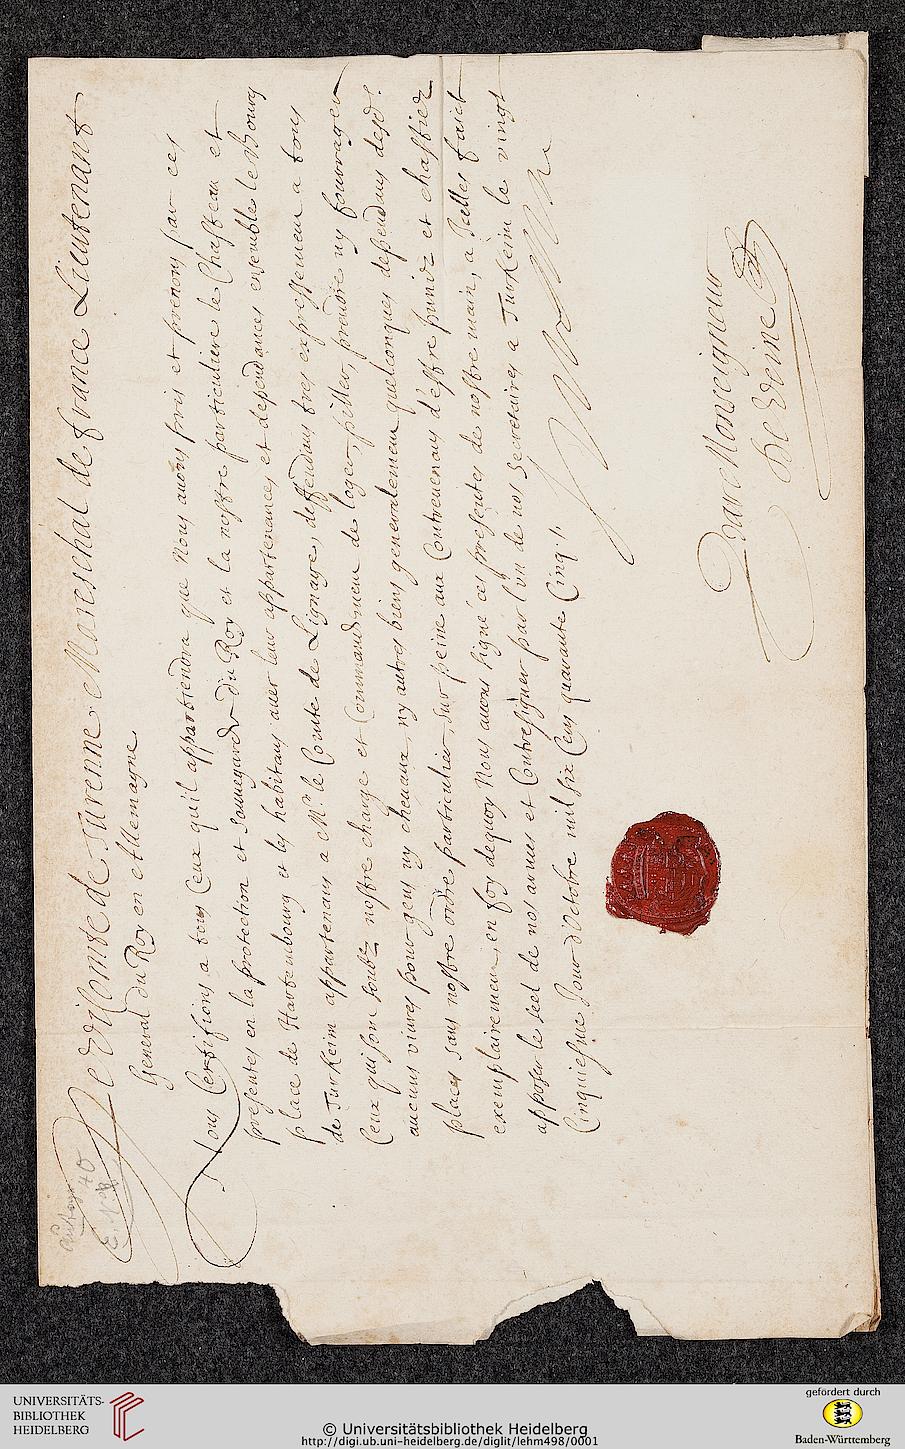 Le Viconte de Turenne Mareschal de france Lieutenant
General du Roy en Allemagne
Nous Certifions a tous Ceux qu'il appartiendra que Nous avons pris et prenons par ces
presentes en la protection et sauuegarde du Roy et la nostre particuliere le Chasteau et
place de Hartembourg et les habitans auec leurs appartenances et dependances ensemble le Bourg
de Turkeim appartenans a Mr. le Comte de Linange, deffendans tres expressemen a tous
Ceux qui sont soubz nostre charge et Commandemen de loger, piller, prendre ny fourrager
aucuns viures pour gens ny cheuaux, ny autres biens generalemen quelconques dependans desd.
places sans nostre ordre particulier, sur peine aux Contreuenans d'estre puniz et chastiez
exemplairemen, en foy dequoy Nous auons signé ces presentes de nostre main, a Icelles faict
apposer le seel de nos armes et Contresigner par l'un de nos Secretaires a Turkeim le vingt
Cinquiesme Jour d'Octobre mil six Cens quarante Cinq
Turenne
Par Monseigneur
40
UNIVERSITÄTS-
BIBLIOTHEK
HEIDELBERG
© Universitätsbibliothek Heidelberg
http://digi.ub.uni-heidelberg.de/diglit/lehm498/0001
gefördert durch
Baden-Württemberg